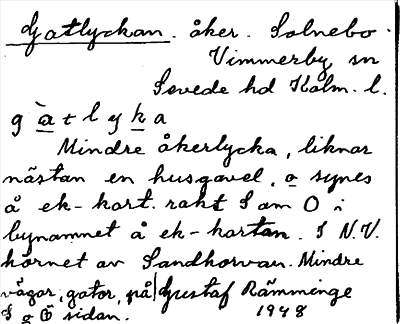 Gatlyckan. åker. Solnebo.
Vimmerby sn
Sevede hd Kalm. l.
g à t l y k a
Mindre åkerlycka, liknar
nästan en husgavel, o synes
å ek-kart. rakt S am O i
bynamnet å ek-kartan. I N.V.
hörnet av Sandhorvan. Mindre
vägar, gator, på
S o Ö sidan.
Gustaf Rämminge
1948